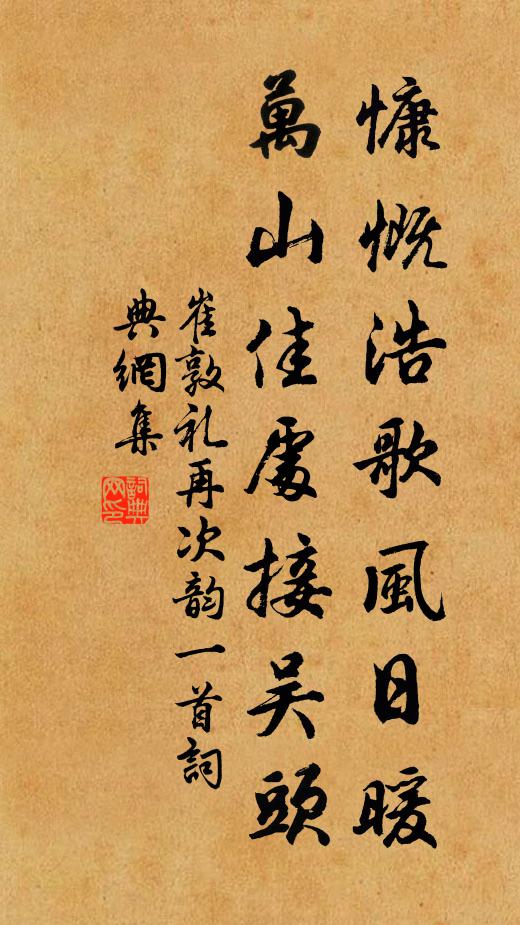 慷慨浩歌風日暖
萬山佳處接吴頭
崔敦礼再次韵一首詞
典網集
詞典网印